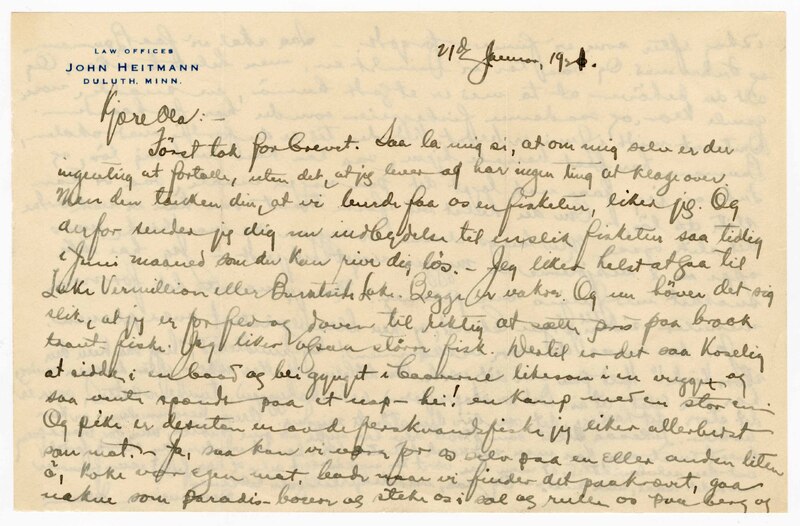 LAW OFFICES
JOHN HEITMANN
DULUTH, MINN.
21de Januar, 1921.
Kjære Ola: -
Først tak for brevet. Saa la mig si, at om mig selv er der
ingenting at fortælle, uten det, at jeg lever og har ingen ting at klage over
Men den tanken din, at vi burde faa os en fisketur, liker jeg. Og
derfor sender jeg dig nu indbydelse til en slik fisketur saa tidlig
i Juni maaned som du kan rive dig løs. - Jeg liker helst at gaa til
Lake Vermillion eller Lake. Begge er vakre. Og nu høver det sig
slik, at jeg er for fed og doven til riktig at sætte pris paa brook
traut fiske. Jeg liker ogsaa større fisk. Dertil er det saa koselig
at sidde i en baad og bli gynget i baarene likesom i en vugge, og
saa vente spændt paa et nap - hei! en kamp med en stor en -
Og pike er desuten en av de ferskvandsfiske jeg liker allerbedst
som mat. - Ja, saa kan vi være for os selv paa en eller anden liten
ø, koke vor egen mat, bade naar vi finder det paakrævt, gaa
nakne som paradis-boere og steke os i sol og rulle os paa berg og